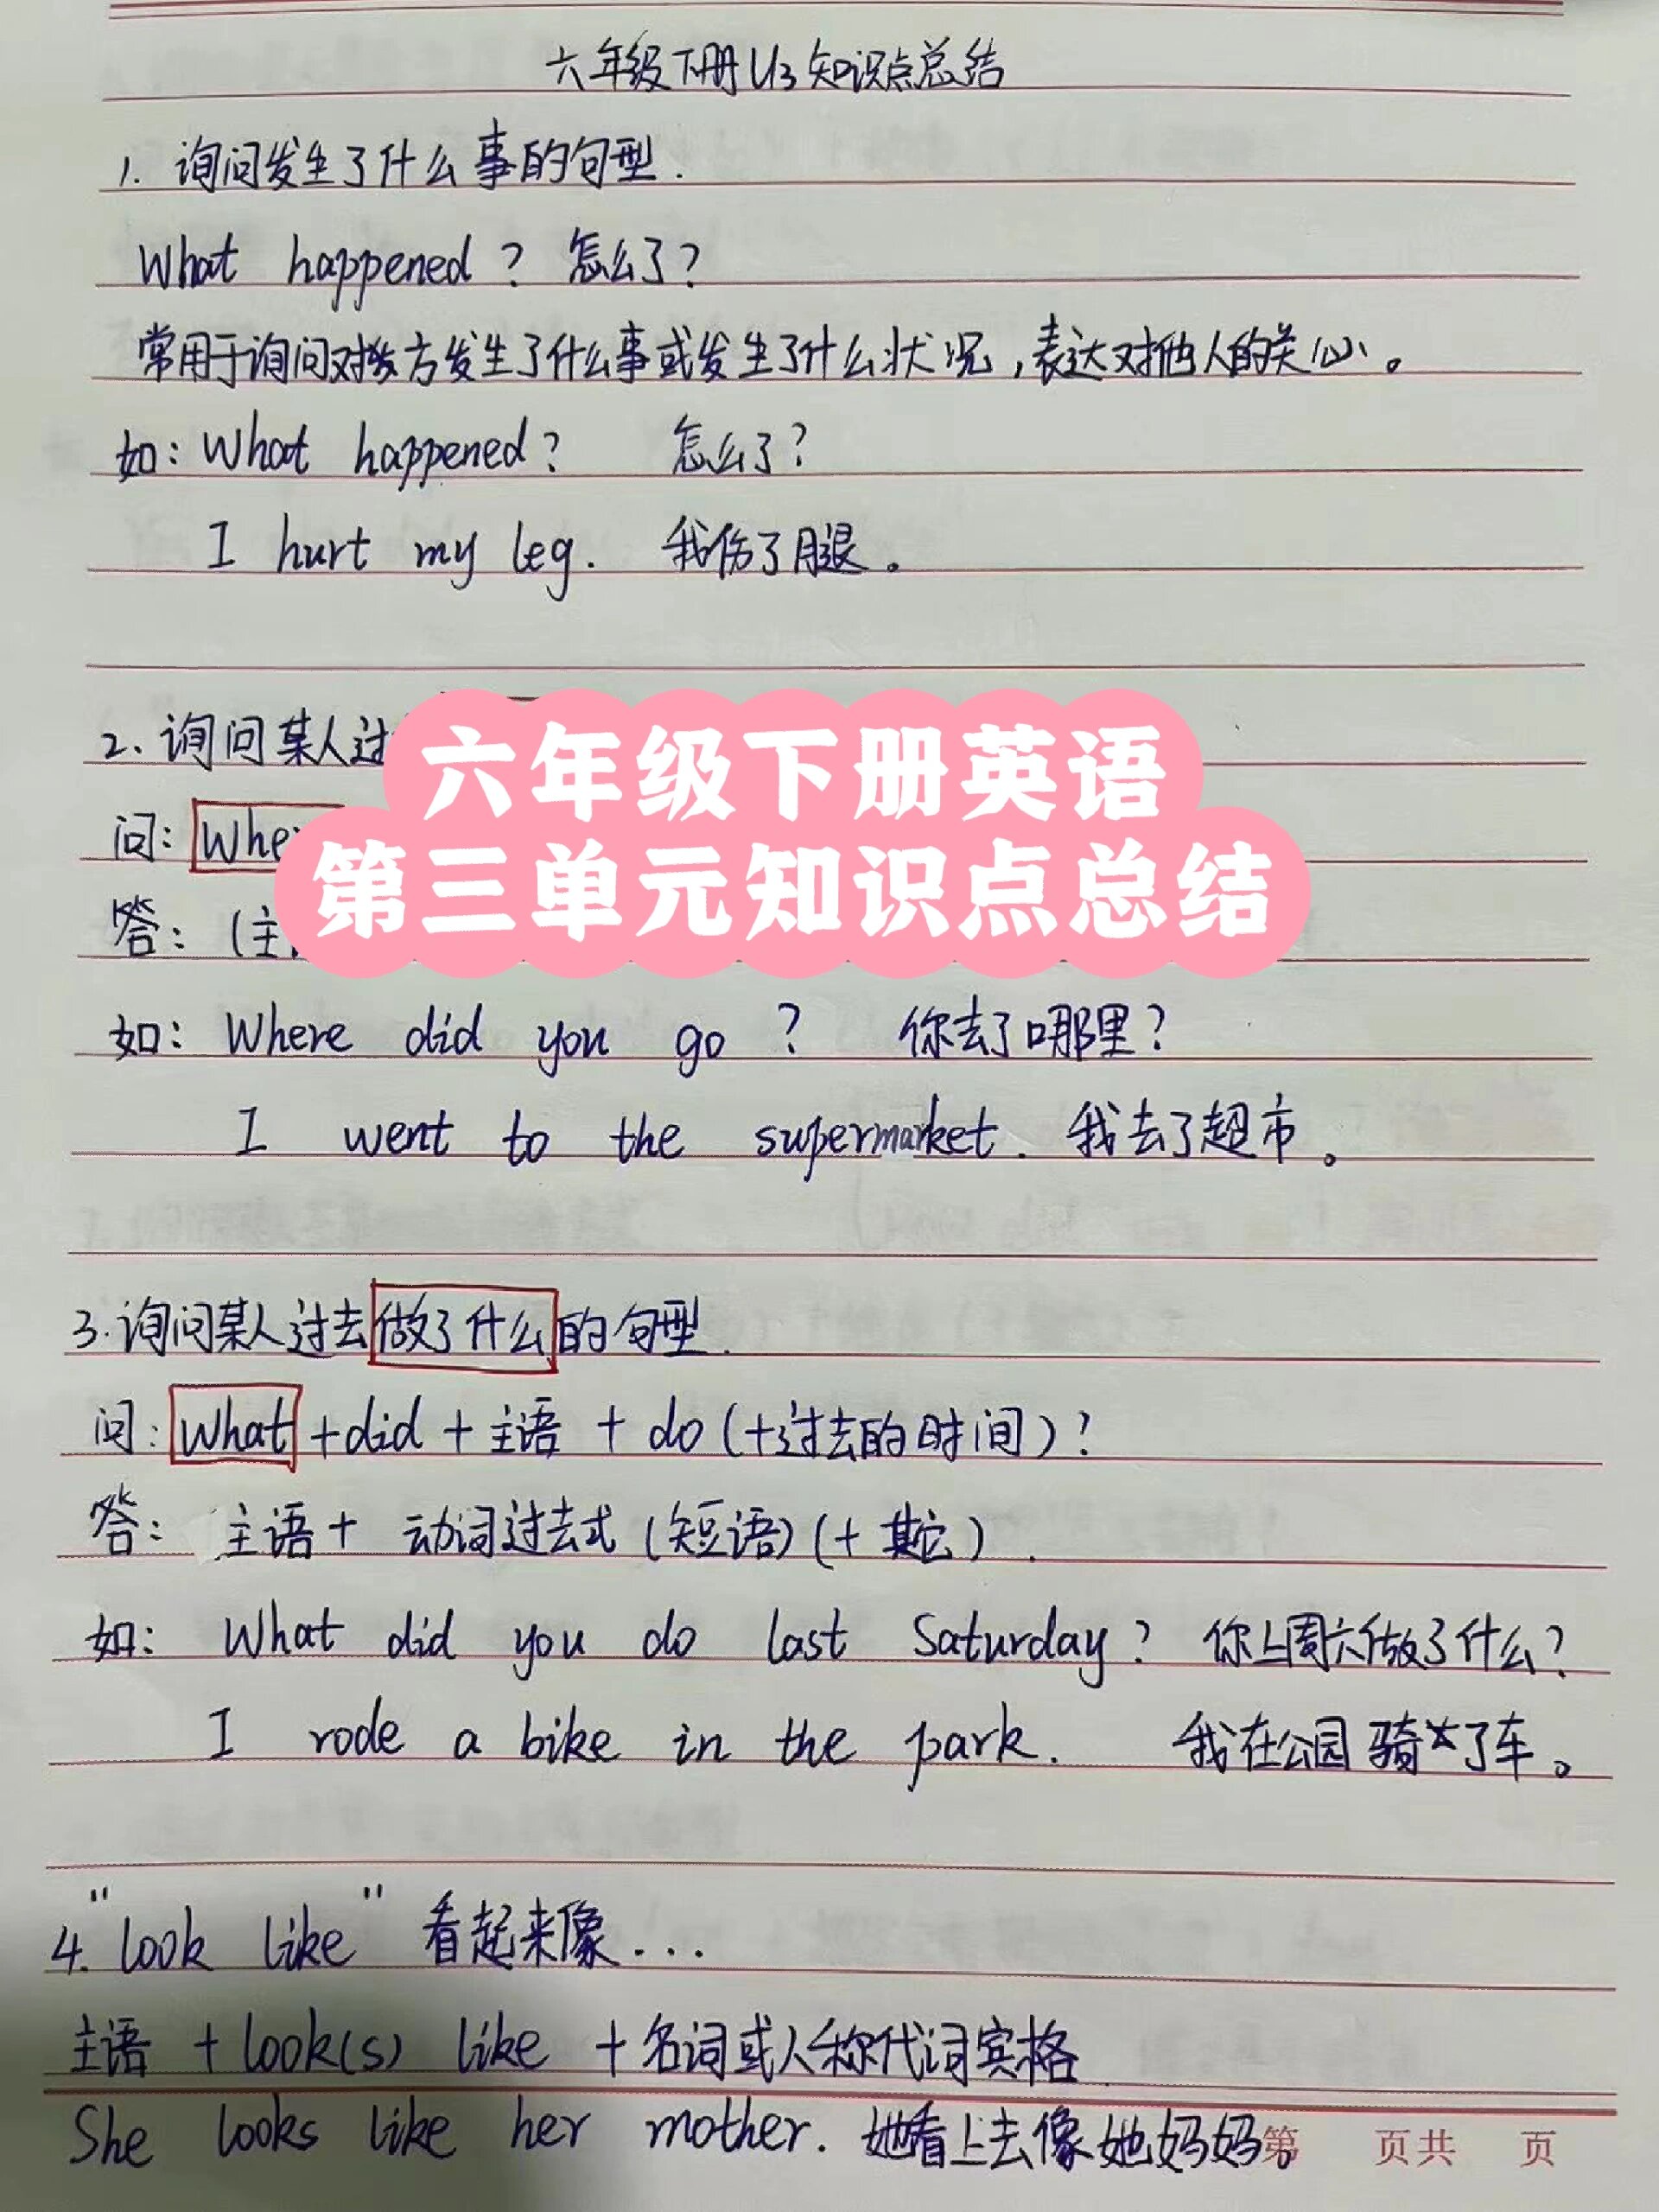 六年级下册U3知识点总结
1. 询问发生了什么事的句型.
What happened? 怎么了?
常用于询问对方发生了什么事或发生了什么状况,表达对他人的关心。
如: What happened? 怎么了?
I hurt my leg. 我伤了腿。
2. 询问某人过
六年级下册英语
问:
第三单元知识点总结
答: (主
如: Where did you go? 你去了哪里?
I went to the supermarket. 我去了超市。
3. 询问某人过去做了什么的句型.
问: What + did + 主语 + do (+过去的时间)?
答: 主语 + 动词过去式 (短语) (+ 其它).
如: What did you do last Saturday? 你上周六做了什么?
I rode a bike in the park. 我在公园骑了车。
4. "look like" 看起来像...
主语 + look(s) like + 名词或人称代词宾格
She looks like her mother. 她看上去像她妈妈。
第 页共 页